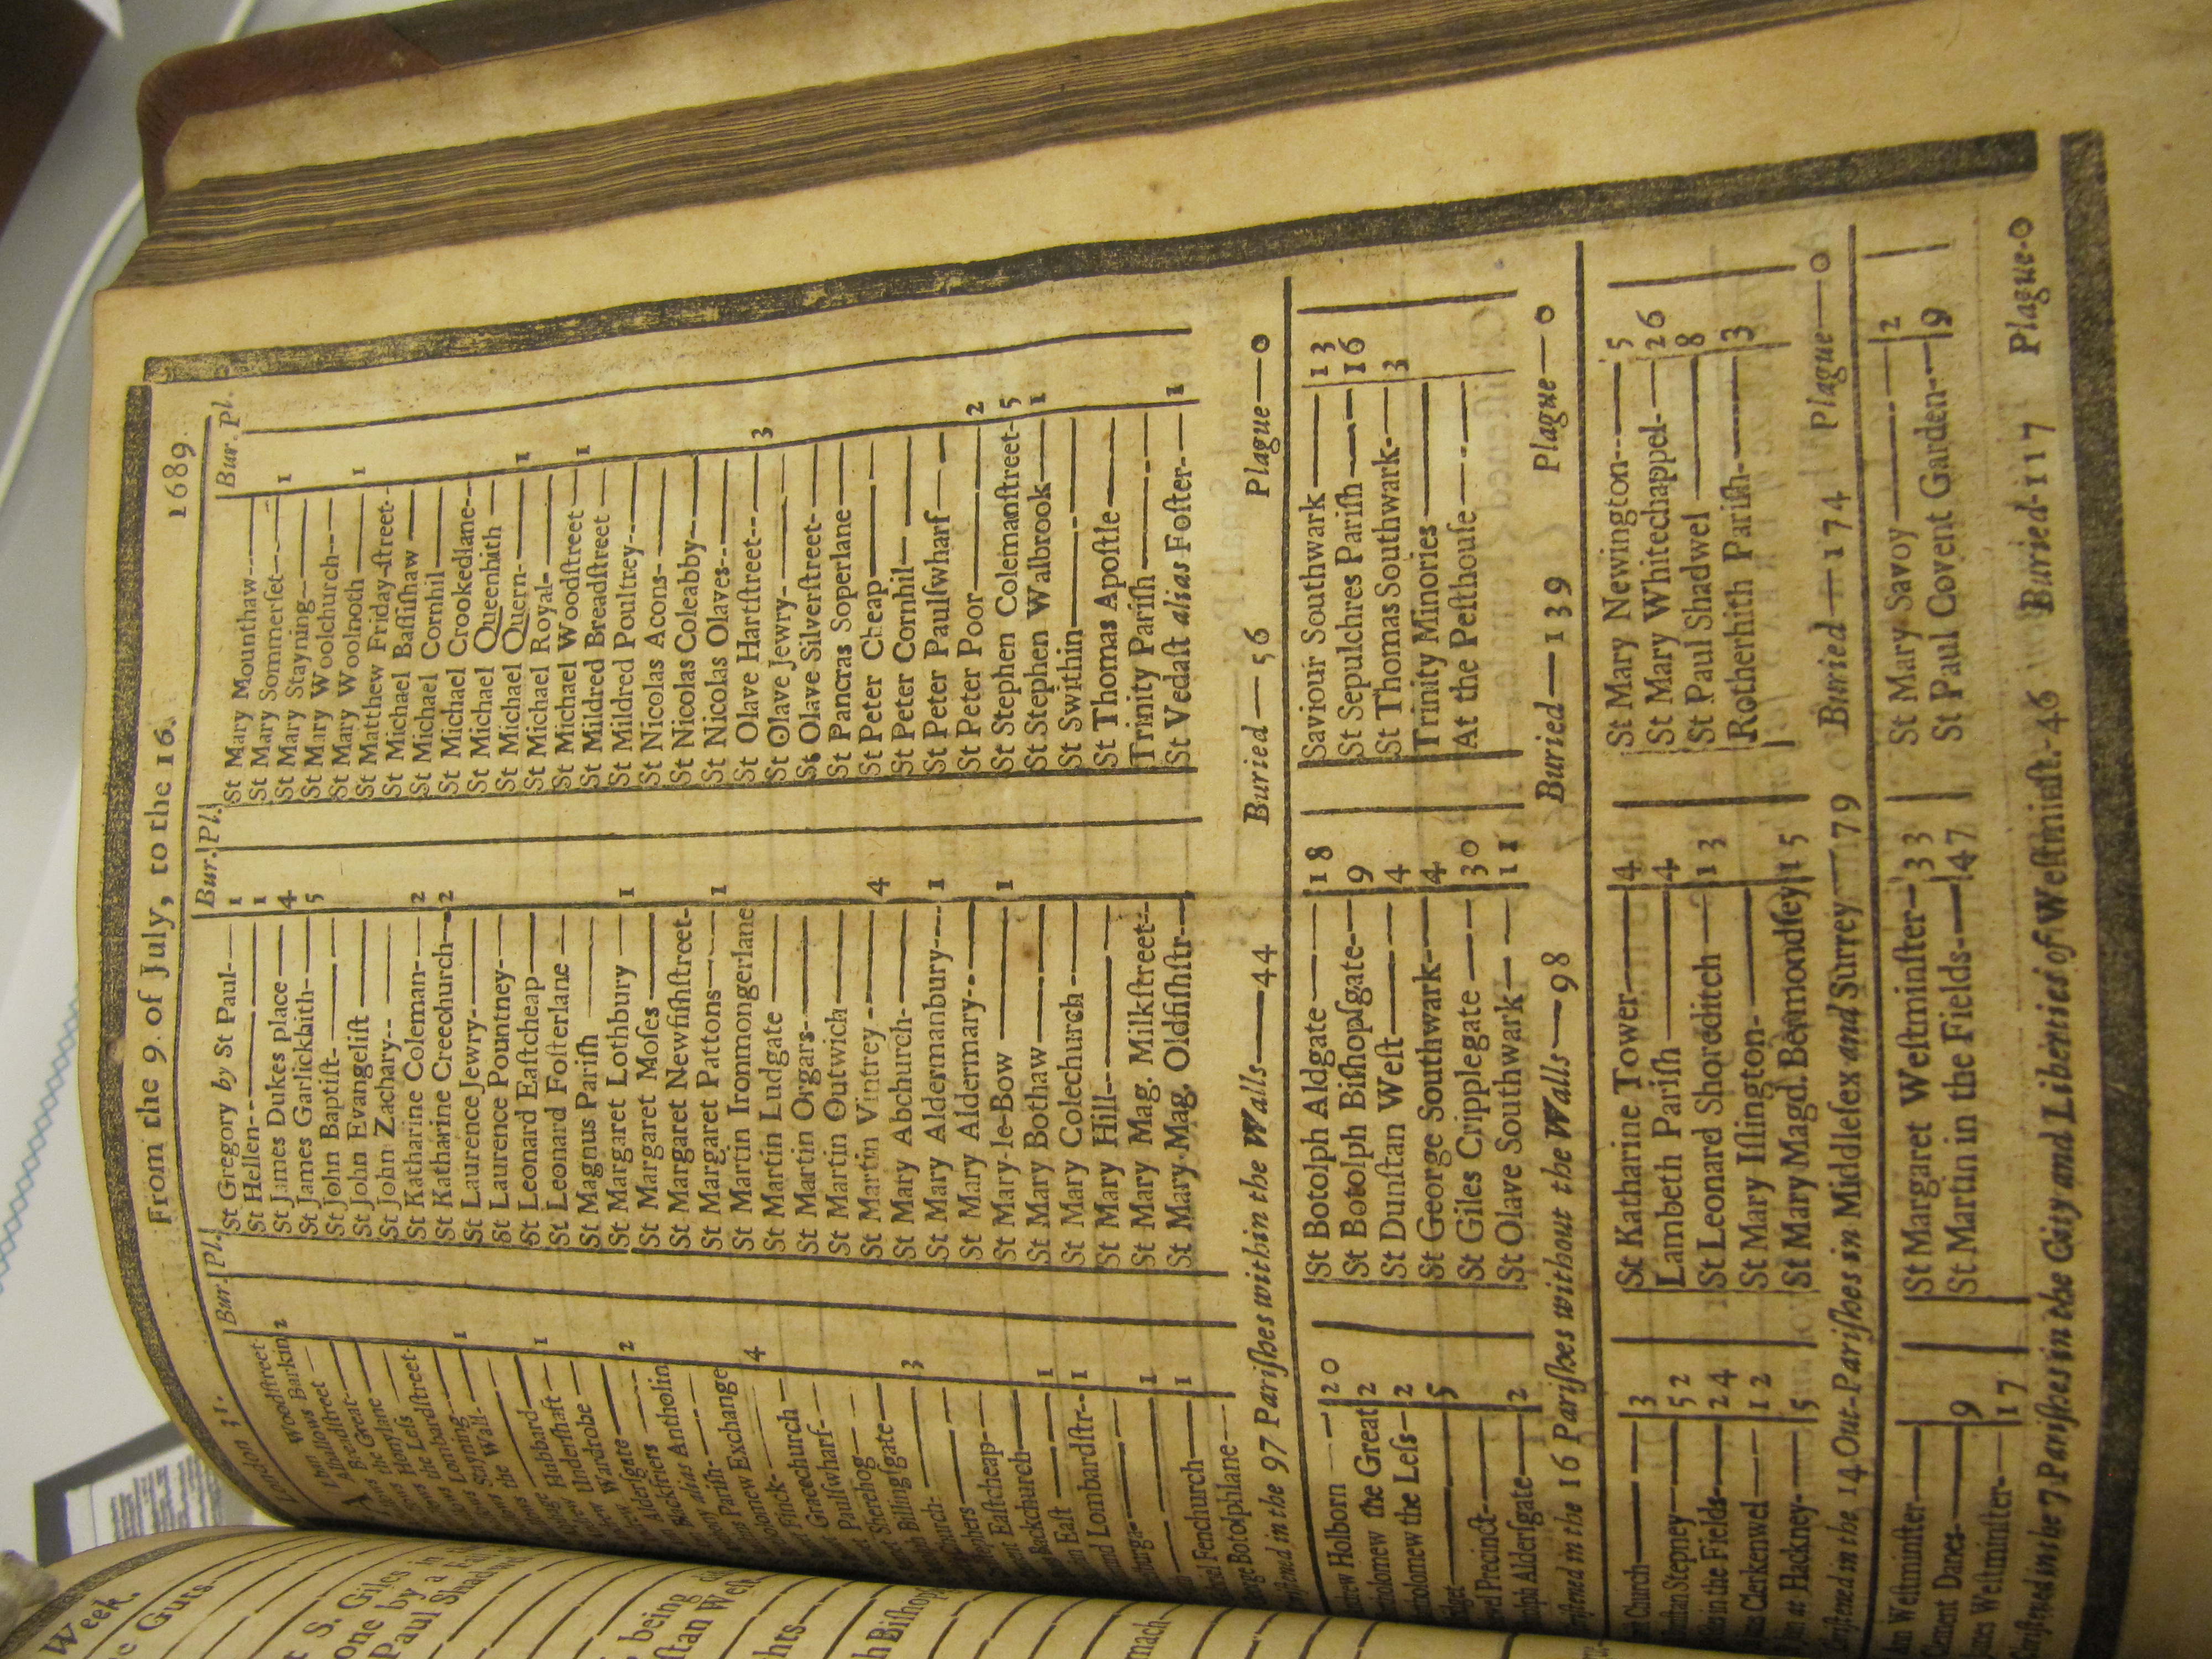 London 31. From the 9. of July, to the 16. 1689
Bur. Pl. Bur. Pl. Bur. Pl.
Woodſtreet
Barkin 2
Breadſtreet
Great
Honylane
the Leſs
Lombardſtreet
Lombard 1
Stayning
the Wall
Hubbard 1
Underſhaft
Wardrobe
Alderſgate 2
Blackfriers
alias Antholin
Pariſh
Exchange
Finck 4
Gracechurch
Paulſwharf
Sherehog
Billingſgate
Church 3
Eaſtcheap
Backchurch
Eaſt 1
Lombardſtr 1
1
Fenchurch 1
Botolphlane
St Gregory by St Paul 1
St Hellen 1
St James Dukes place 4
St James Garlickhith 5
St John Baptiſt
St John Evangeliſt
St John Zachary
St Katharine Coleman 2
St Katharine Creechurch 2
St Laurence Jewry
St Laurence Pountney
St Leonard Eaſtcheap
St Leonard Foſterlane
St Magnus Pariſh
St Margaret Lothbury 1
St Margaret Moſes
St Margaret Newfiſhſtreet
St Margaret Pattons 1
St Martin Ironmongerlane
St Martin Ludgate
St Martin Orgars
St Martin Outwich
St Martin Vintrey 4
St Mary Abchurch
St Mary Aldermanbury 1
St Mary Aldermary
St Mary-le-Bow 1
St Mary Bothaw
St Mary Colechurch
St Mary Hill
St Mary Mag. Milkſtreet
St Mary Mag. Oldfiſhſtr
St Mary Mounthaw
St Mary Sommerſet 1
St Mary Stayning
St Mary Woolchurch
St Mary Woolnoth 1
St Matthew Friday-ſtreet
St Michael Baſſiſhaw
St Michael Cornhil
St Michael Crookedlane
St Michael Queenhith
St Michael Quern 1
St Michael Royal
St Michael Woodſtreet 1
St Mildred Breadſtreet
St Mildred Poultrey
St Nicolas Acons
St Nicolas Coleabby
St Nicolas Olaves
St Olave Hartſtreet 3
St Olave Jewry
St Olave Silverſtreet
St Pancras Soperlane
St Peter Cheap
St Peter Cornhil
St Peter Paulſwharf
St Peter Poor 2
St Stephen Colemanſtreet 5
St Stephen Walbrook 1
St Swithin
St Thomas Apoſtle
Trinity Pariſh
St Vedaſt alias Foſter 1
in the 97 Pariſhes within the Walls—44 Buried—56 Plague—0
Holborn 20
the Great 2
the Leſs 2
5
Precinct
Alderſgate 2
St Botolph Aldgate 18
St Botolph Biſhopſgate 9
St Dunſtan Weſt 4
St George Southwark 4
St Giles Cripplegate 30
St Olave Southwark 11
Saviour Southwark 13
St Sepulchres Pariſh 16
St Thomas Southwark 3
Trinity Minories
At the Peſthouſe
in the 16 Pariſhes without the Walls—98 Buried—139 Plague—0
Church 3
Stepney 52
in the Fields 24
Clerkenwel 12
at Hackney 5
St Katharine Tower 4
Lambeth Pariſh 4
St Leonard Shoreditch 13
St Mary Iſlington
St Mary Magd. Bermondſey 15
St Mary Newington 5
St Mary Whitechappel 26
St Paul Shadwel 8
Rotherhith Pariſh 3
in the 14 Out-Pariſhes in Middleſex and Surrey—79 Buried—174 Plague—0
Weſtminſter
Danes 9
Weſtminſter 17
St Margaret Weſtminſter 33
St Martin in the Fields 47
St Mary Savoy 2
St Paul Covent Garden 9
in the 7 Pariſhes in the City and Liberties of Weſtminſt. 46 Buried 117 Plague 0
Week.
Guts
S. Giles in
one by a
Paul Shadwel
being
ſtan Weſt